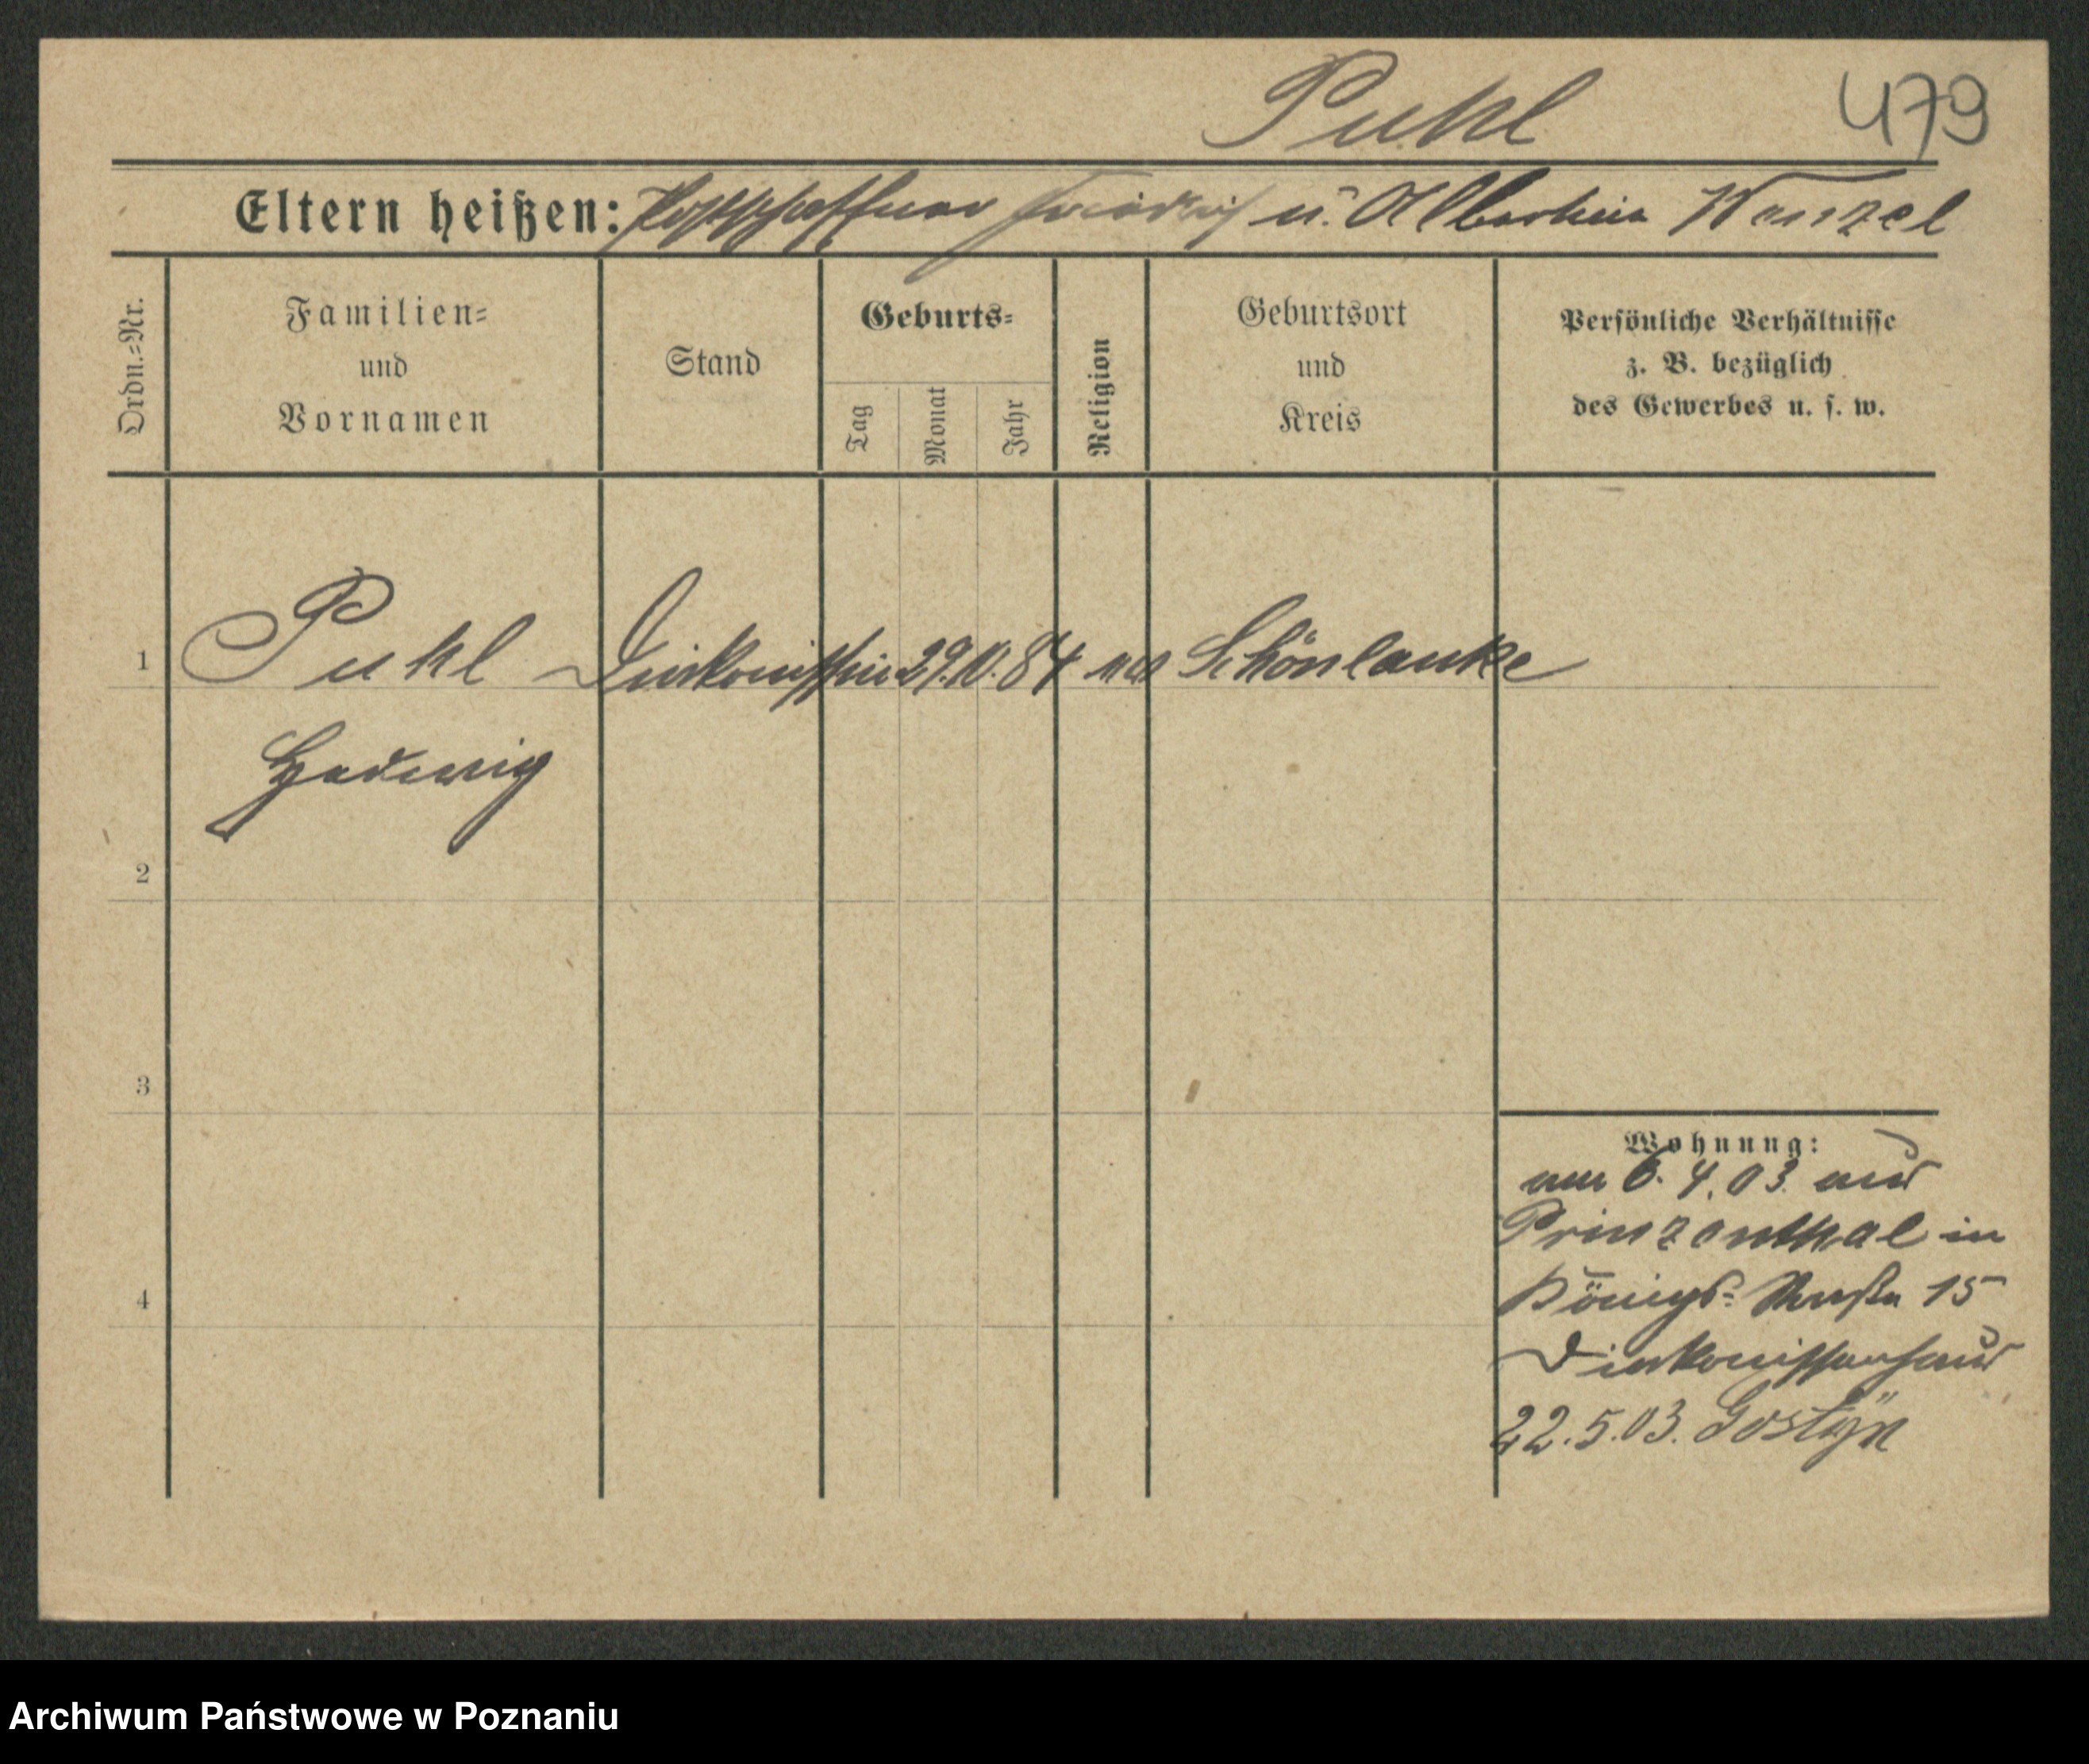 Puhl 479
Eltern heißen: Postschaffner Friedrich u. Albertine Wenzel
Ordn.=Nr.
Familien=
und
Vornamen
Stand
Geburts=
Tag Monat Jahr
Religion
Geburtsort
und
Kreis
Persönliche Verhältnisse
z. B. bezüglich
des Gewerbes u. s. w.
1 Puhl Diakonissin 29. 10. 84 Schönlanke
Hedewig
2
3
4
Wohnung:
am 6. 4. 03. aus
Prinzenthal in
Königs=Straße 15
Diakonissenhaus
22. 5. 03. Gostÿn
Archiwum Państwowe w Poznaniu